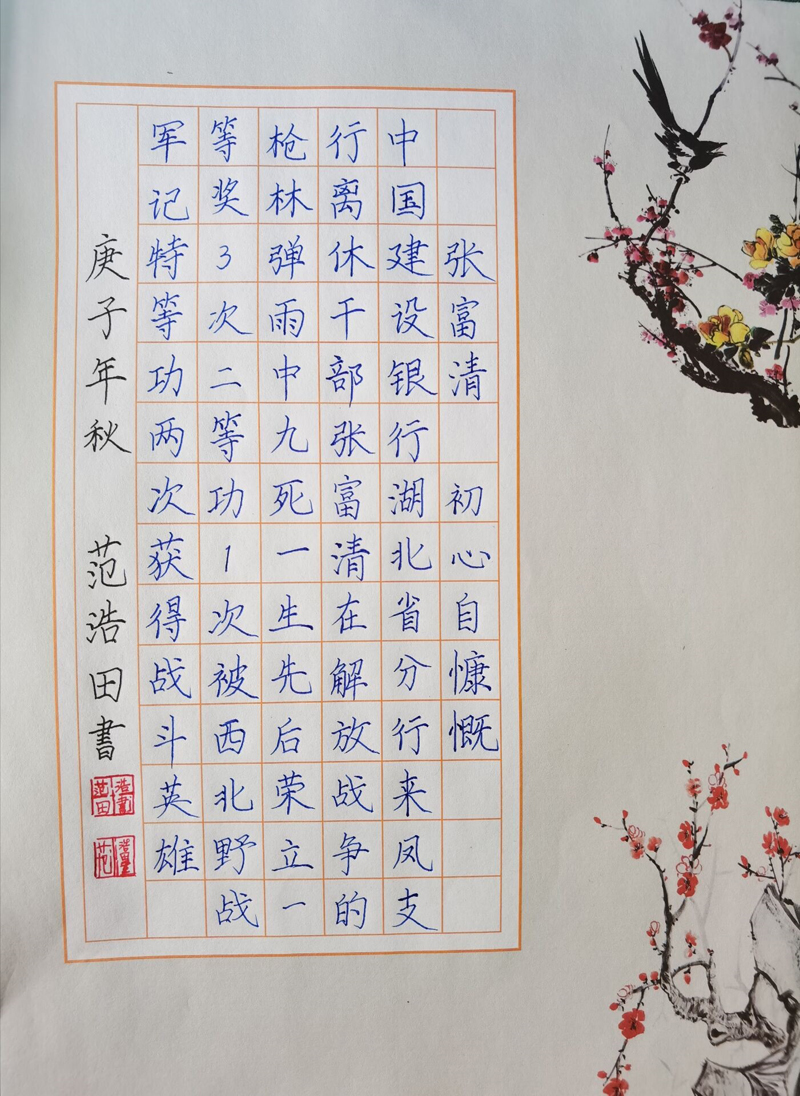 张富清 初心自慷慨
中国建设银行湖北省分行来凤支
行离休干部张富清在解放战争的
枪林弹雨中九死一生先后荣立一
等奖3次二等功1次被西北野战
军记特等功两次获得战斗英雄
庚子年秋 范浩田書